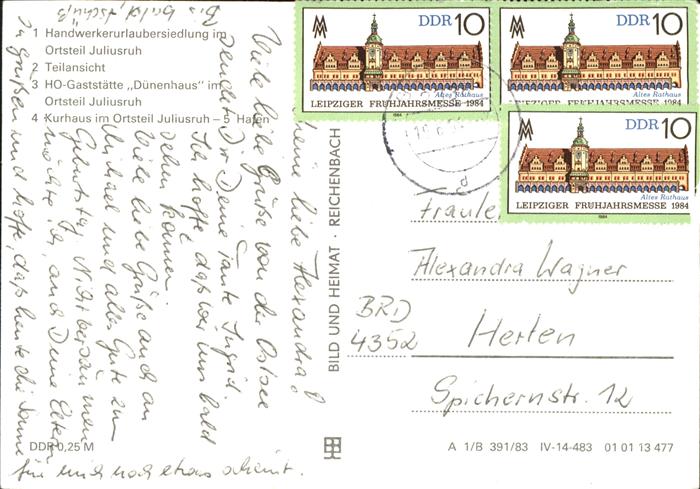 1 Handwerkerurlaubersiedlung im
Ortsteil Juliusruh
2 Teilansicht
3 HO-Gaststätte „Dünenhaus" im
Ortsteil Juliusruh
4 Kurhaus im Ortsteil Juliusruh – 5 Hafen
Meine liebe Alexandra!
Viele liebe Grüße von der Ostsee
sendet Dir Deine Tante Ingrid.
Ich hoffe, daß wir uns bald
sehen können.
Viele liebe Grüße auch an
Michael und alles Gute zum
Geburtstag.
möchte ich auch Deine Eltern
grüßen und hoffe, daß heute die Sonne
für mich noch etwas scheint.
Bis bald, tschüß
DDR 0,25 M
BILD UND HEIMAT · REICHENBACH
DDR 10
Altes Rathaus
LEIPZIGER FRÜHJAHRSMESSE 1984
1984
DDR 10
Altes Rathaus
LEIPZIGER FRÜHJAHRSMESSE 1984
DDR 10
Altes Rathaus
LEIPZIGER FRÜHJAHRSMESSE 1984
1984
d
Fräulein
Alexandra Wagner
BRD
4352 Herten
Spichernstr. 12
A 1/B 391/83 IV-14-483 01 01 13 477